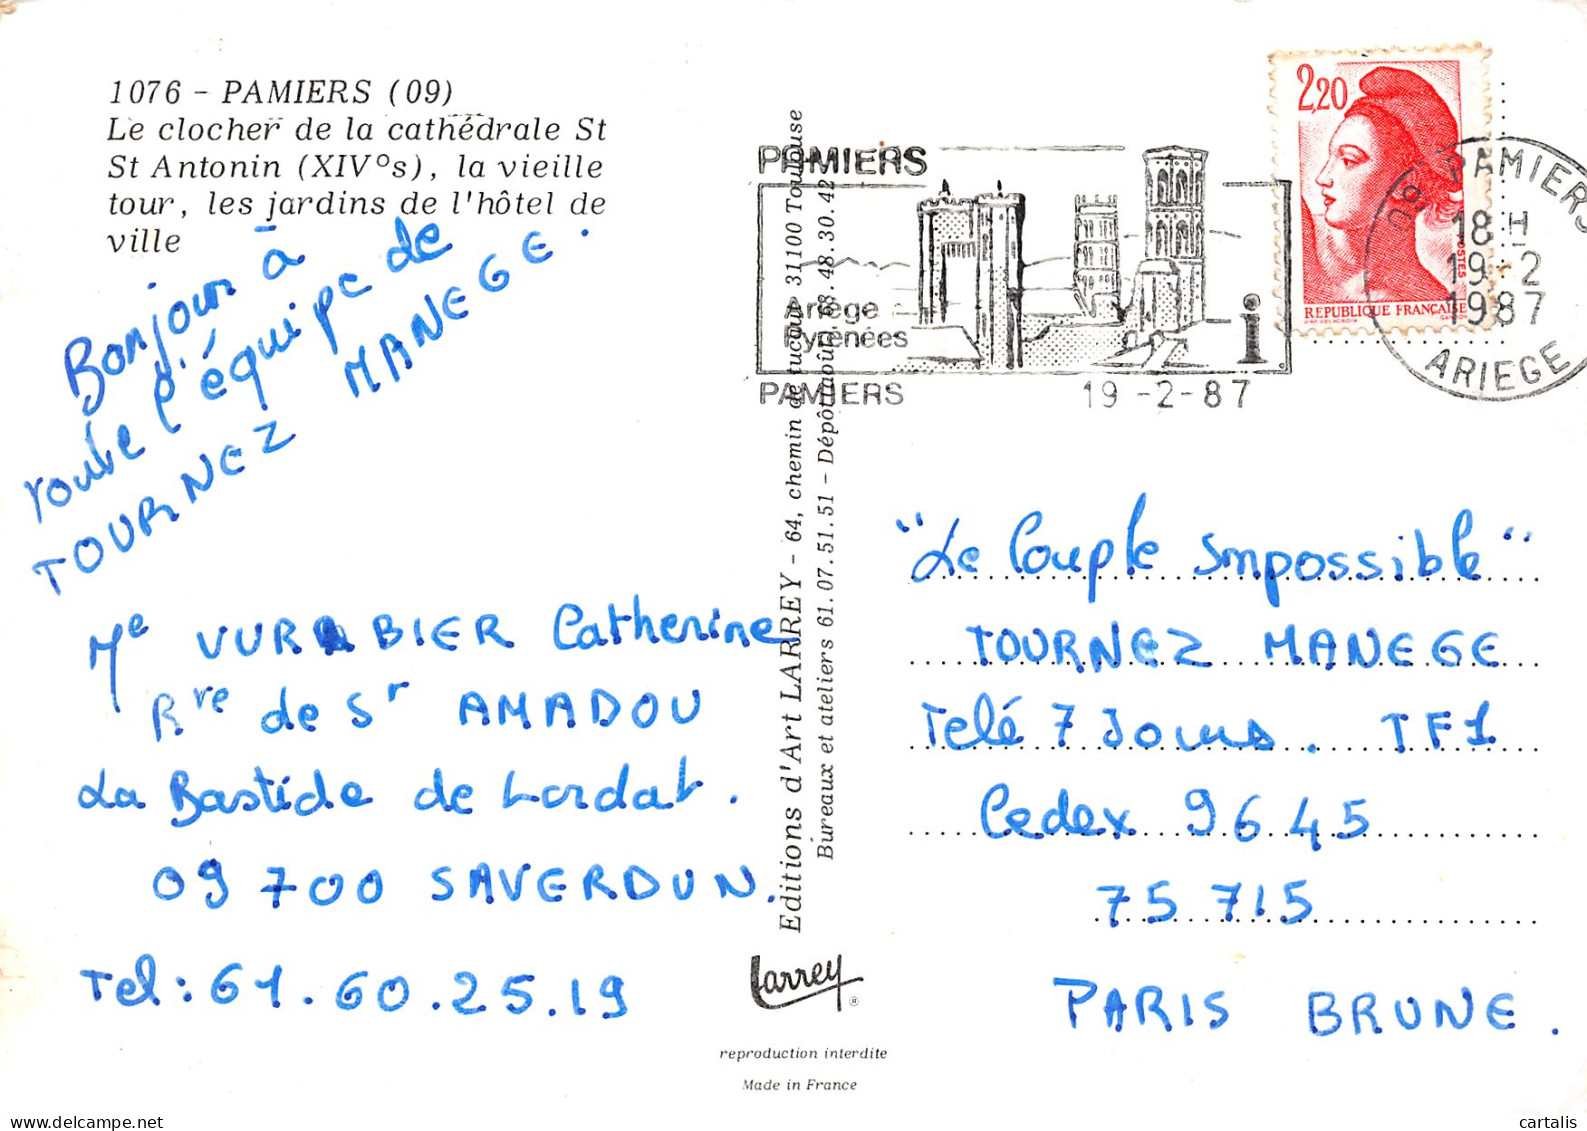 1076 - PAMIERS (09)
Le clocher de la cathédrale St
St Antonin (XIV°s), la vieille
tour, les jardins de l'hôtel de
ville
Bonjour à
toute l'équipe de
TOURNEZ MANEGE.
Me VURABIER Catherine
Rte de St AMADOU
La Bastide de Lordat.
09 700 SAVERDUN.
Tel : 61.60.25.19
Editions d'Art LARREY - 64, chemin de tucaut 31100 Toulouse
Bureaux et ateliers 61.07.51.51 - Dépôt 48.30.42
Larrey ®
reproduction interdite
Made in France
PAMIERS
Ariège
Pyrénées
i
PAMIERS 19 -2-87
2,20
POSTES
REPUBLIQUE FRANÇAISE
09 PAMIERS
18 H
19-2
1987
ARIEGE
"Le Couple Impossible"
TOURNEZ MANEGE
Telé 7 Jours. TF1
Cedex 9645
75 715
PARIS BRUNE.
cartalis